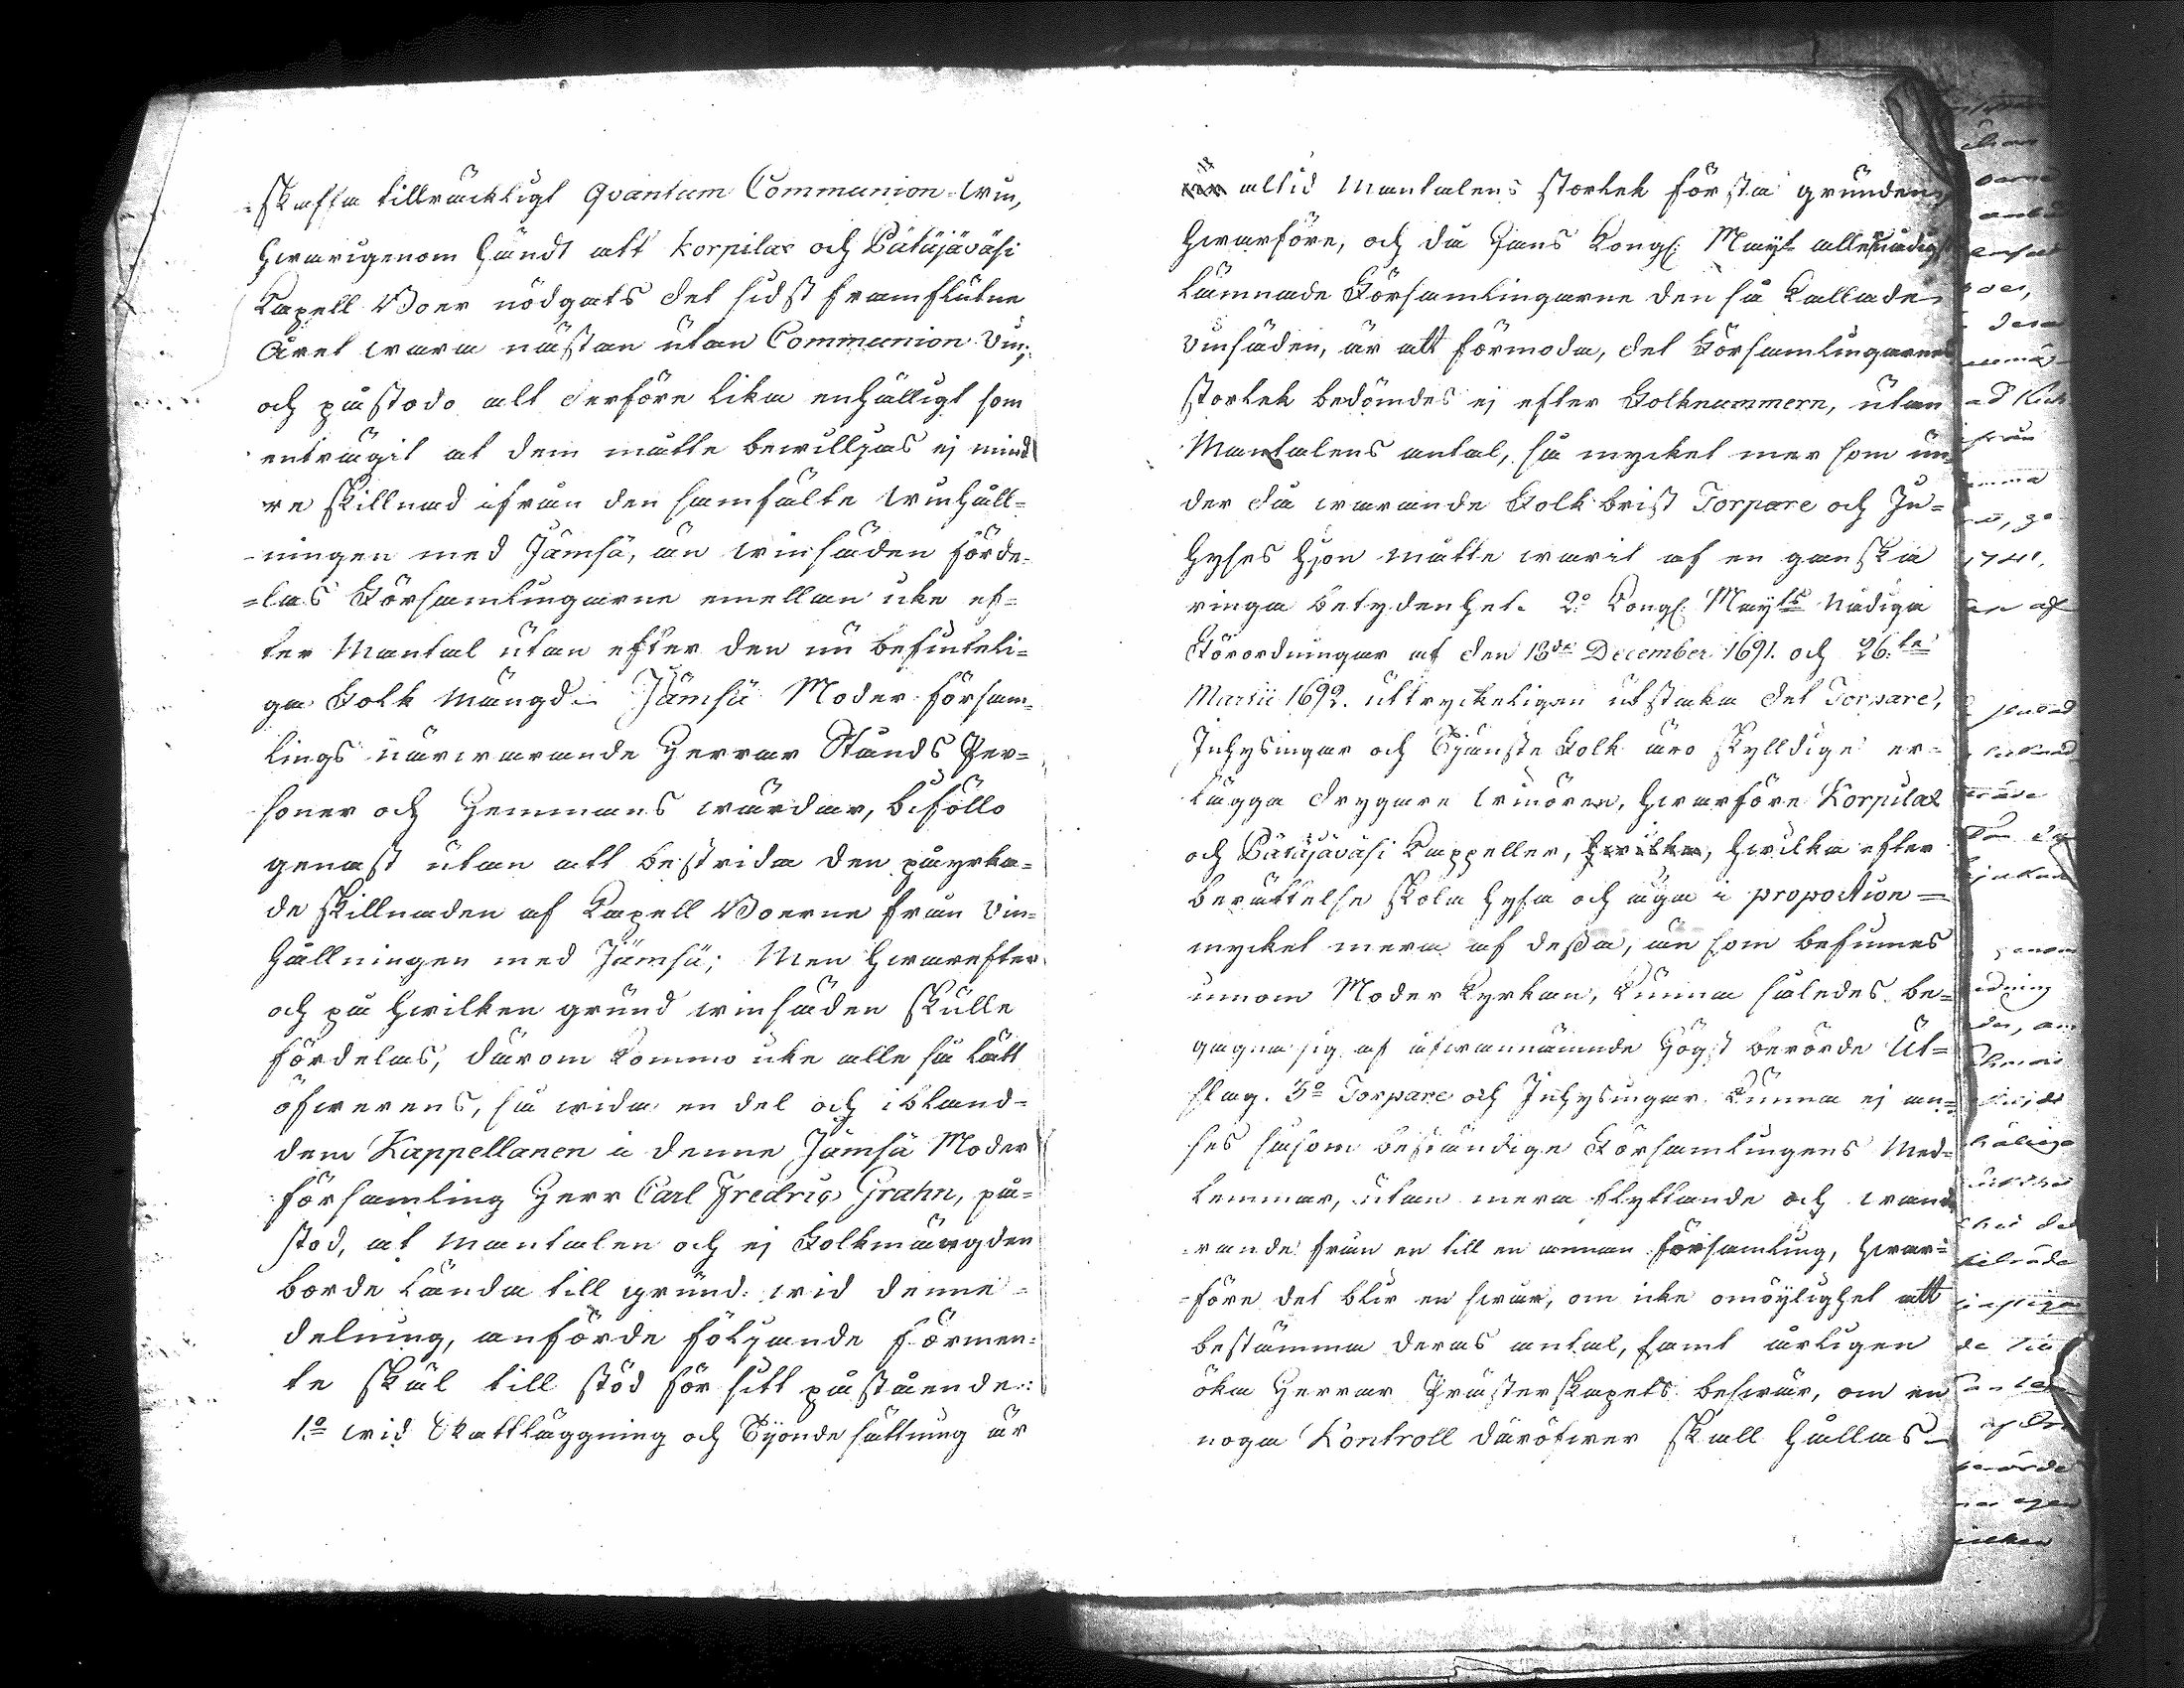 skaffa tillräckligt Qvantum Communion-win,
hwarigenom händt att Korpilax och Pätäjäväsi
Capell Boer nödgats det sidst framflutne
Året wara nästan utan Communion Vin;
och påstodo alt derföre lika enhälligt som
enträgit at dem måtte bewilljas ej mind
re skillnad ifrån den samfälte winhåll-
-ningen med Jämsä, än winsäden förde-
=las Församlingarne emellan icke ef-
ter Mantal utan efter den nu befinteli-
ga Folk mängd. Jämsä Moder-försam-
lings närwarande Herrar Stånds Per-
soner och Hemmans wärdar, biföllo
genast utan att bestrida den påyrka-
de skillnaden af Capell Boerne från Vin-
hållningen med Jämsä; Men hwarefter
och på hwilken grund winsäden skulle
fördelas, därom kommo icke alle så lätt
öfwerens, så wida en del och ibland-
dem Kappellanen i denne Jämsä Moder
församling Herr Carl Fredric Grahn, på-
stod, at Mantalen och ej Folkmängden
borde lända till grund wid denne
delning, anförde följande förmen-
te skäl till stöd för sitt påstående:
1:o wid Skattläggning och Tijonde sättning är
altid Mantalens storlek första grunden,
hwarföre, och då Hans Kongl: Mayt allernådigst
lämnade Församlingarne den så kallade
Vinsäden, är att förmoda, det Församlingarnes
storlek bedömdes ej efter Folknummern, utan
Mantalens antal, så mycket mer som un-
der då warande Folk brist Torpare och In-
hyses Hjon måtte warit af en ganska
ringa betydenhet. 2:o Kongl: Mayts Nådiga
Förordningar af den 13de December 1691. och 26:te
Martii 1692. uttryckeligen utstaka det Torpare,
Inhysingar och Tjänste Folk äro skylldige er-
lägga drygare winören, hwarföre Korpilax
och Pätäjäväsi Cappeller, hwilka, hwilka efter
berättelse skola hysa och äga i proportion
mycket mera af dessa, än som befinnes
innom Moder Kyrkan, kunna således be-
gagna sig af åfwannämnde Högst berörde Ut-
slag. 3:o Torpare och Inhysingar kunna ej an-
ses såsom beständige Församlingens Med-
lemmar, utan mera flyttande och wand
rande från en till en annan församling, hwar-
-före det blir en swår, om icke omöylighet att
bestämma deras antal, samt årligen
öka Herrar Prästerskapets beswär, om en
noga Kontroll däröfwer skall hållas